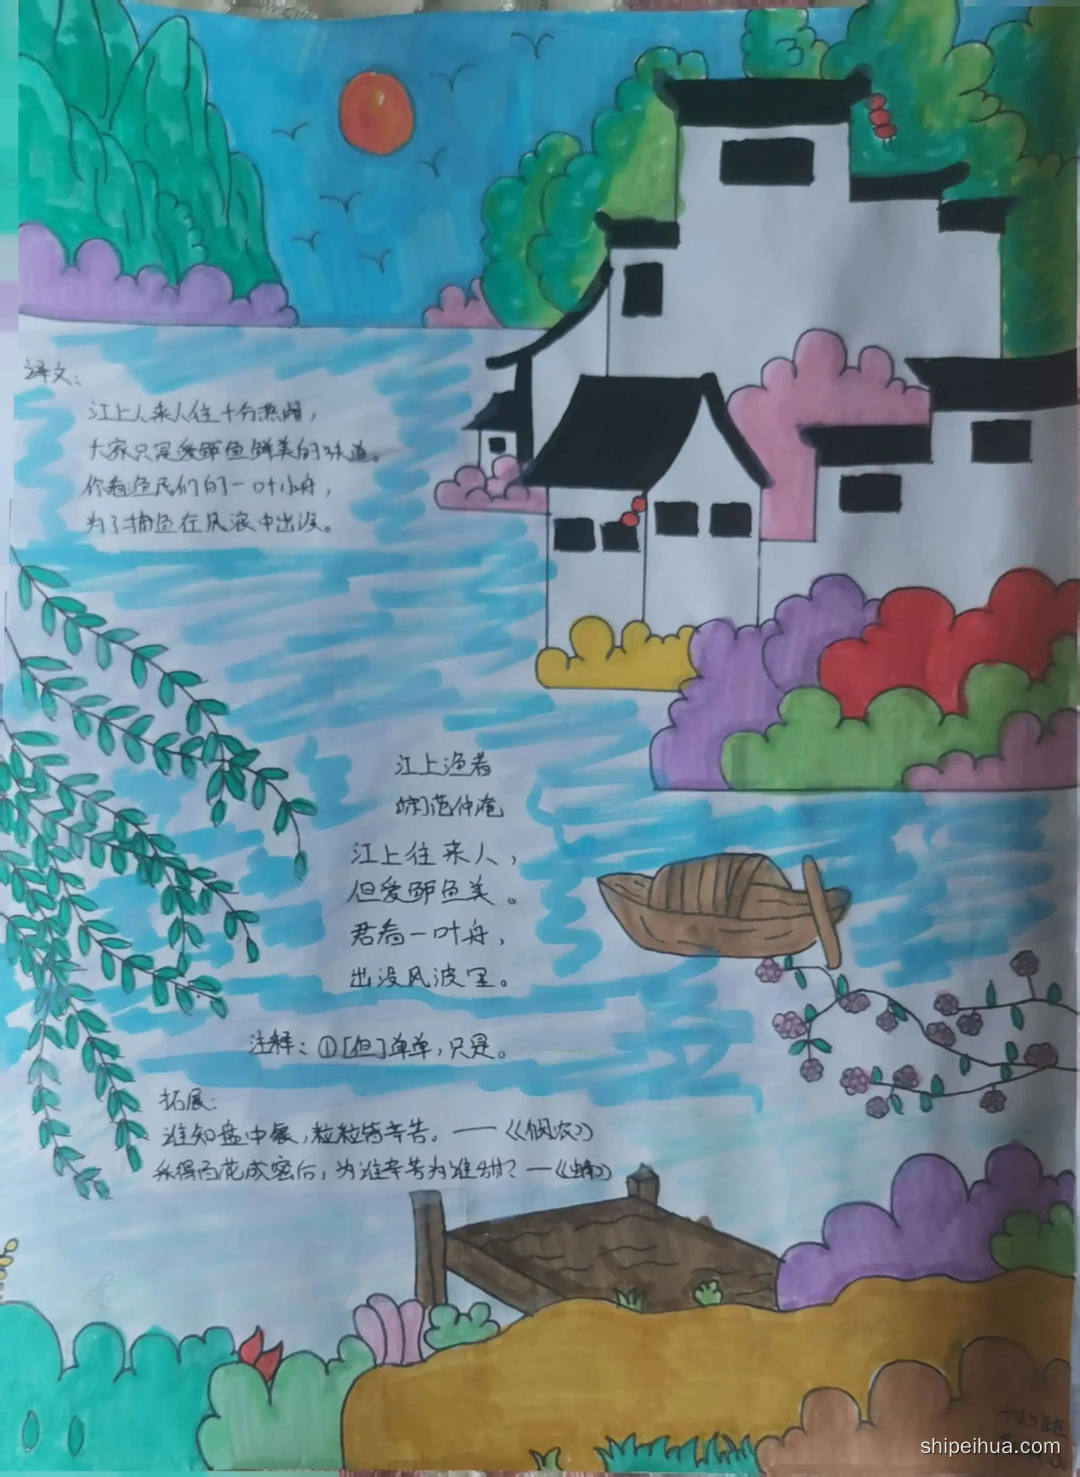 译文:
江上人来人往十分热闹,
大家只是爱鲈鱼鲜美的味道。
你看渔民们的一叶小舟,
为了捕鱼在风浪中出没。
江上渔者
范仲淹
江上往来人,
但爱鲈鱼美。
君看一叶舟,
出没风波里。
注释:①[但]单单,只是。
拓展:
谁知盘中餐,粒粒皆辛苦。——《悯农》
采得百花成蜜后,为谁辛苦为谁甜?—《蜂》
shipeihua.com